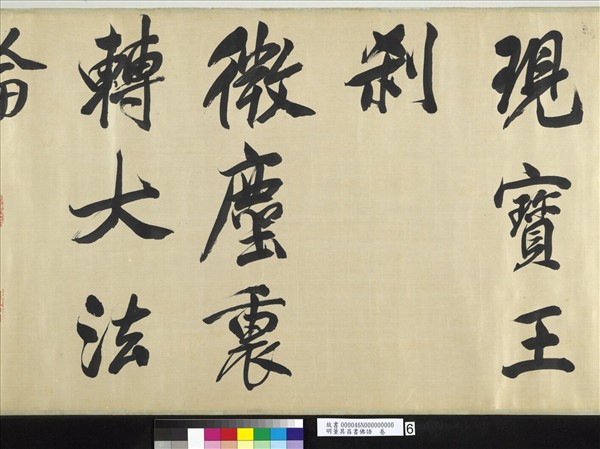 現寶王
刹
微塵裏
轉大法
故書 000046N000000000
明董其昌書佛語 卷
6